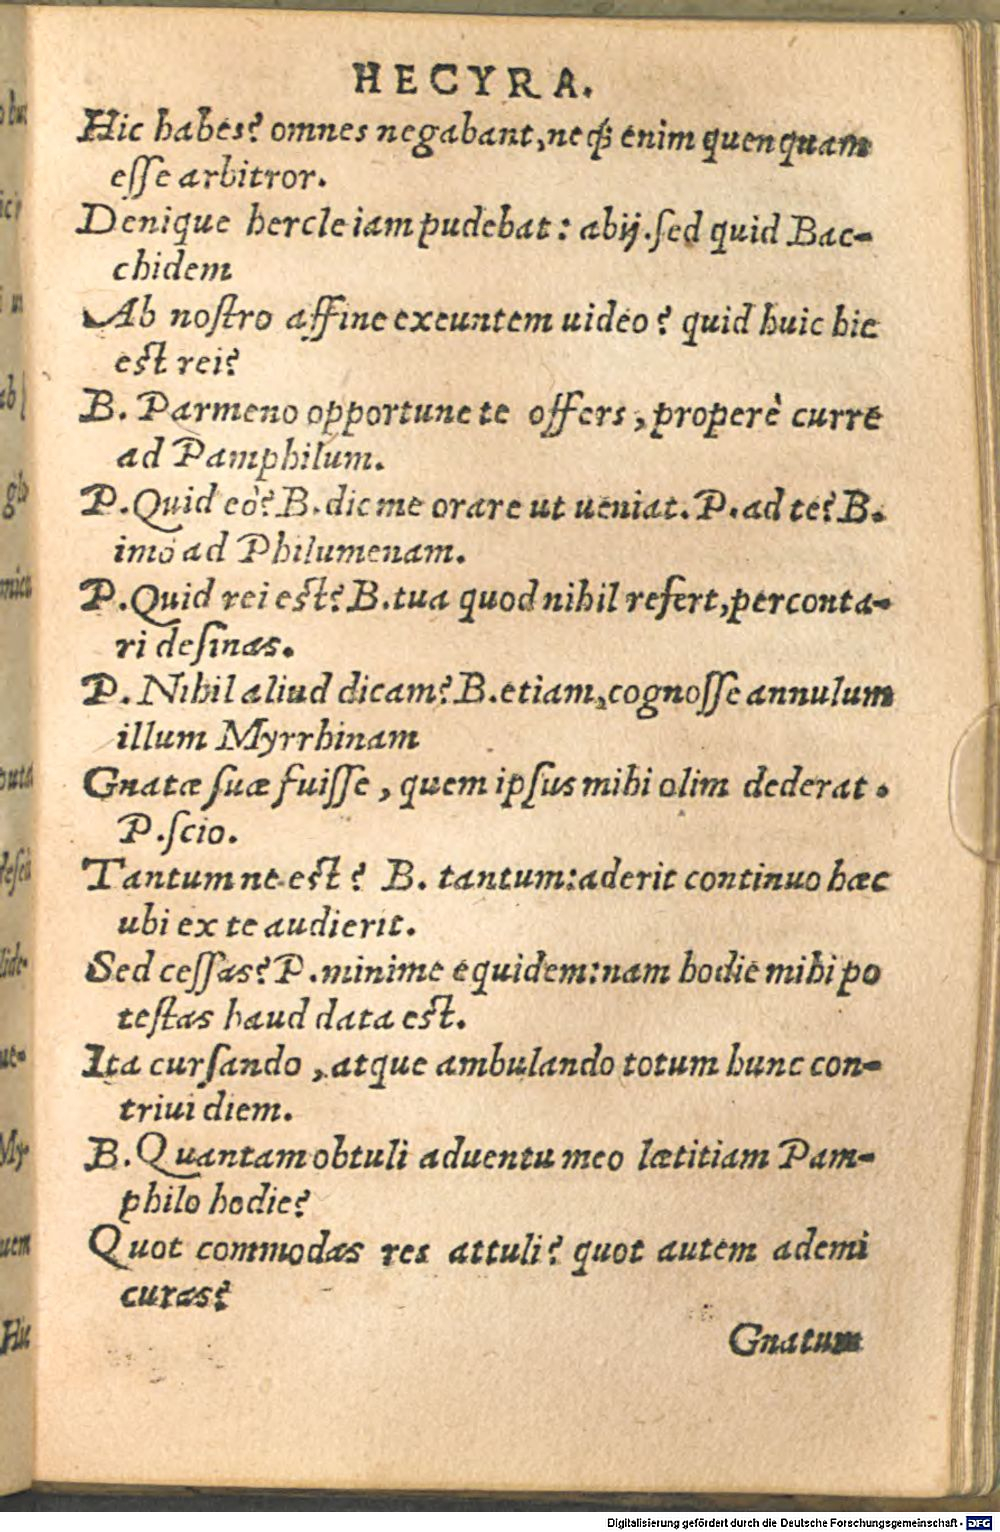 HECYRA.
Hic habes? omnes negabant, neq; enim quenquam
esse arbitror.
Denique hercle iam pudebat: abij. sed quid Bac-
chidem
Ab nostro affine exeuntem uideo? quid huic hic
est rei?
B. Parmeno opportune te offers, properè curre
ad Pamphilum.
P. Quid eò? B. dic me orare ut ueniat. P. ad te? B.
imò ad Philumenam.
P. Quid rei est? B. tua quod nihil refert, perconta-
ri desinas.
P. Nihil aliud dicam? B. etiam, cognosse annulum
illum Myrrhinam
Gnatæ suæ fuisse, quem ipsus mihi olim dederat.
P. scio.
Tantumne est? B. tantum: aderit continuo hæc
ubi ex te audierit.
Sed cessas? P. minime equidem: nam hodie mihi po
testas haud data est.
Ita cursando, atque ambulando totum hunc con-
triui diem.
B. Quantam obtuli aduentu meo lætitiam Pam-
philo hodie?
Quot commodas res attuli? quot autem ademi
curas?
Gnatum
Digitalisierung gefördert durch die Deutsche Forschungsgemeinschaft - DFG